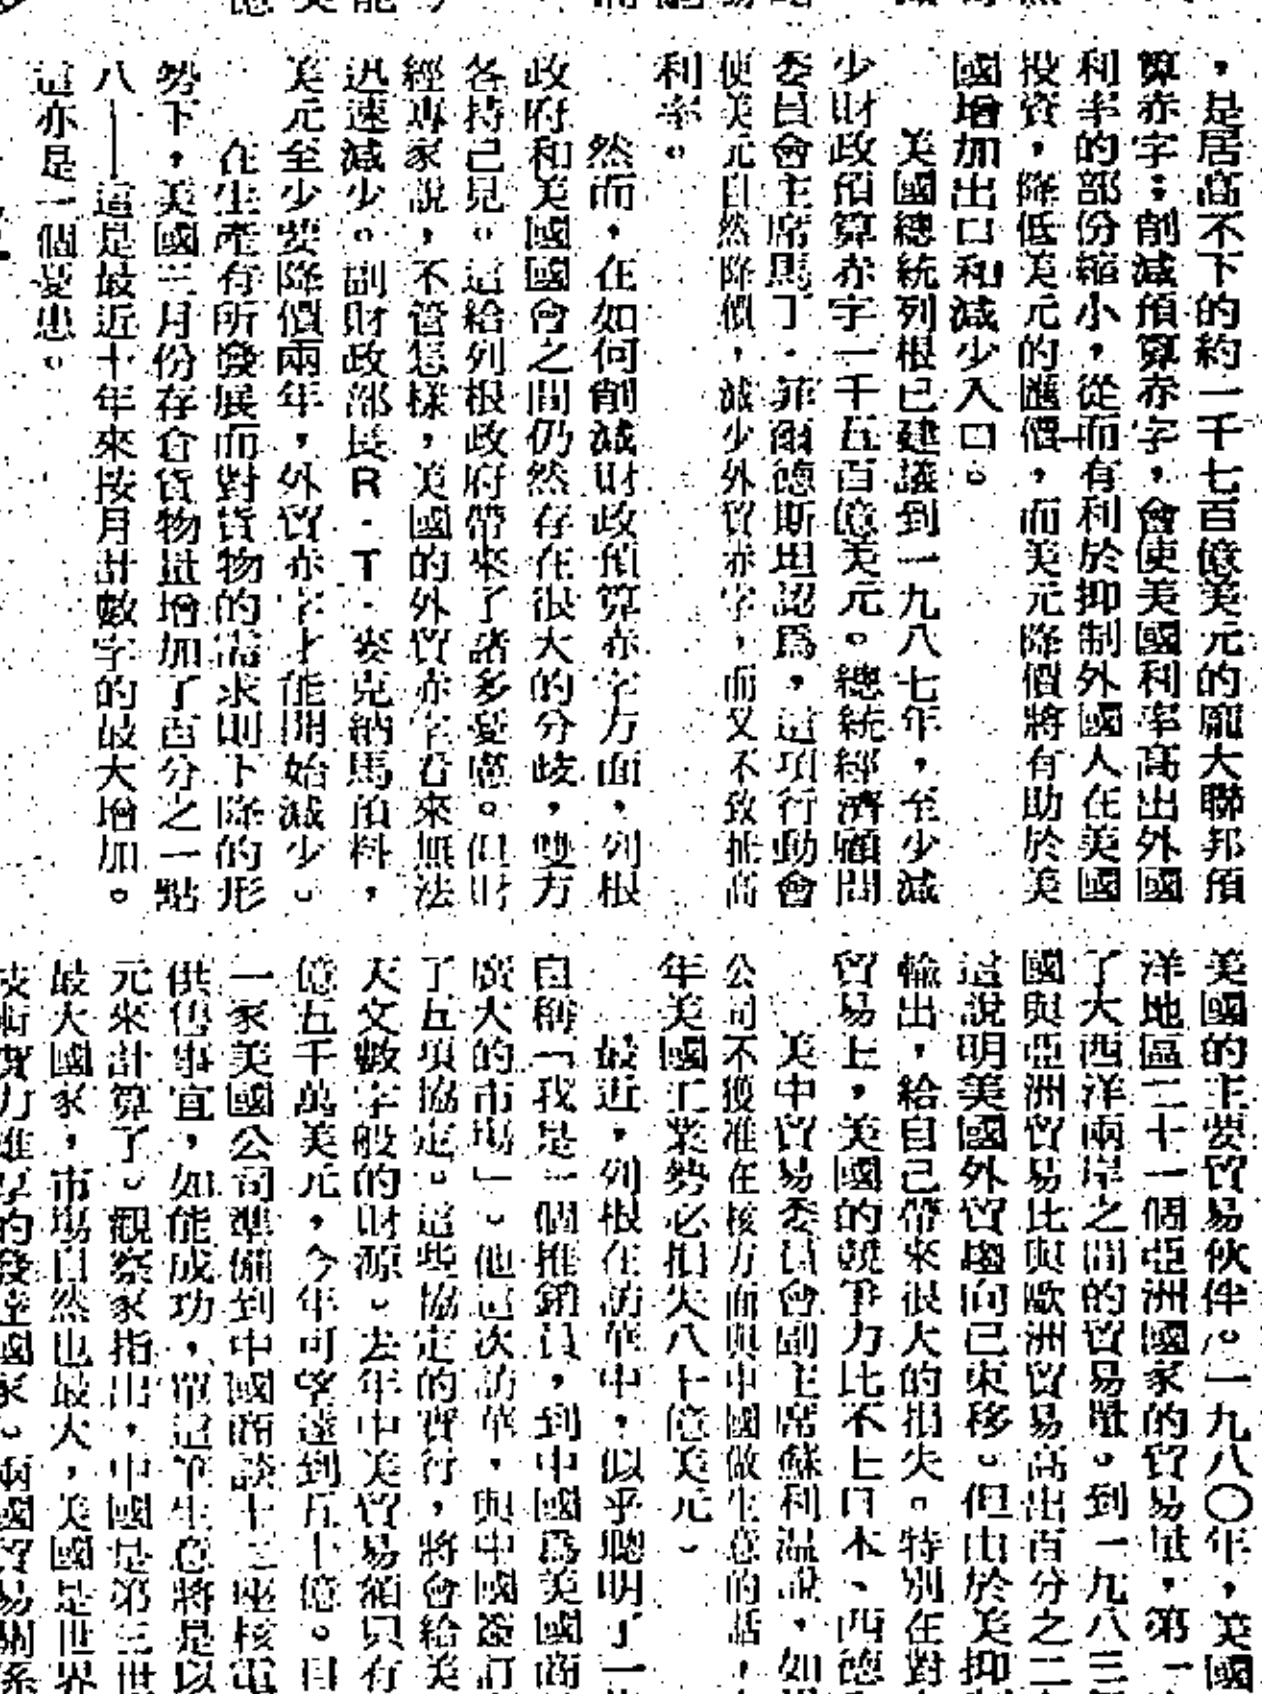 ，是居高不下的約一千七百億美元的龐大聯邦預
算赤字；削減預算赤字，會使美國利率高出外國
利率的部份縮小，從而有利於抑制外國人在美國
投資，降低美元的匯價，而美元降價將有助於美
國增加出口和減少入口。
美國總統列根已建議到一九八七年，至少減
少財政預算赤字一千五百億美元。總統經濟顧問
委員會主席馬丁·菲爾德斯坦認爲，這項行動會
使美元自然降價，減少外貿赤字，而又不致抵高
利率。
然而，在如何削減財政預算赤字方面，列根
政府和美國國會之間仍然存在很大的分歧，雙方
各持己見。這給列根政府帶來了諸多憂慮。但財
經專家說，不管怎樣，美國的外貿赤字看來無法
迅速減少。副財政部長R·T·麥克納馬預料，
美元至少要降價兩年，外貿赤字才能開始減少。
在生產有所發展而對貨物的需求則下降的形
勢下，美國三月份存倉貨物量增加了百分之一點
八——這是最近十年來按月計數字的最大增加。
這亦是一個憂患。
美國的主要貿易伙伴。一九八〇年，美國
洋地區二十一個亞洲國家的貿易量，第一
了大西洋兩岸之間的貿易量。到一九八三
國與亞洲貿易比與歐洲貿易高出百分之二
這說明美國外貿趨向已東移。但由於美抑
輸出，給自己帶來很大的損失。特別在對
貿易上，美國的競爭力比不上日本、西德
美中貿易委員會副主席蘇利溫說，如
公司不獲准在核方面與中國做生意的話，
年美國工業勢必損失八十億美元。
最近，列根在訪華中，似乎聰明了一
自稱「我是一個推銷員，到中國爲美國商
廣大的市場」。他這次訪華，與中國簽訂
了五項協定。這些協定的實行，將會給美
天文數字般的財源。去年中美貿易額只有
億五千萬美元，今年可望達到五十億。目
一家美國公司準備到中國商談十二座核電
供售事宜，如能成功，單這筆生意將是以
元來計算了。觀察家指出，中國是第三世
最大國家，市場自然也最大，美國是世界
技術實力雄厚的發達國家。兩國貿易關係